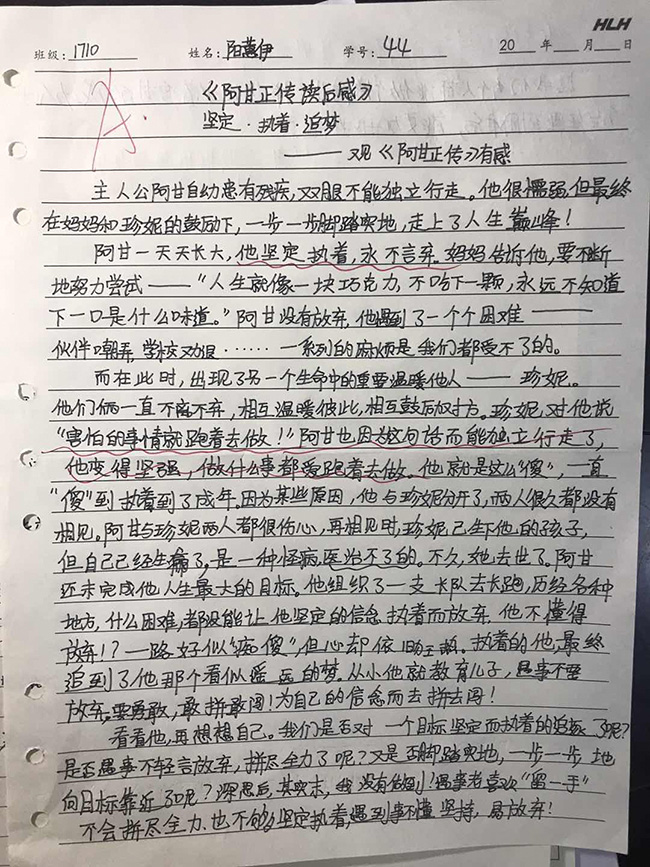 HLH
班级: 1710 姓名: 阳蕙伊 学号: 44 20 年 月 日
A.
《阿甘正传读后感》
坚定·执着·追梦
——观《阿甘正传》有感
主人公阿甘自幼患有残疾,双腿不能独立行走。他很懦弱,但最终
在妈妈和珍妮的鼓励下,一步一步脚踏实地,走上了人生巅峰!
阿甘一天天长大,他坚定执着,永不言弃。妈妈告诉他,要不断
地努力尝试——“人生就像一块巧克力,不吃下一颗,永远不知道
下一口是什么味道。”阿甘没有放弃,他遇到了一个个困难——
伙伴嘲弄,学校劝退……一系列的麻烦是我们都受不了的。
而在此时,出现了另一个生命中的重要温暖他人——珍妮。
他们俩一直不离不弃,相互温暖彼此,相互鼓励对方。珍妮对他说
“害怕的事情就跑着去做!”阿甘也因为这句话而能独立行走了,
他变得坚强,做什么事都爱跑着去做。他就是这么“傻”,一直
“傻”到执着到了成年。因为某些原因,他与珍妮分开了,两人很久都没有
相见。阿甘与珍妮两人都很伤心,再相见时,珍妮已生下他的孩子,
但自己已经生病了,是一种怪病,医治不了的。不久,她去世了。阿甘
还未完成他人生最大的目标。他组织了一支长队去长跑,历经各种
地方,什么困难,都没能让他坚定的信念执着而放弃,他不懂得
放弃!?一路好似“痴傻”,但心却依旧 。执着的他,最终
追到了他那个看似遥远的梦。从小他就教育儿子,遇事不要
放弃,要勇敢,敢拼敢闯!为自己的信念而去拼去闯!
看看他,再想想自己。我们是否对一个目标坚定而执着的追逐了呢?
是否遇事不轻言放弃,拼尽全力了呢?又是否脚踏实地,一步一步地
向目标靠近了呢?深思后,其实未,我没有做到!遇事老喜欢“留一手”
不会拼尽全力,也不够坚定执着,遇到事不懂坚持,易放弃!